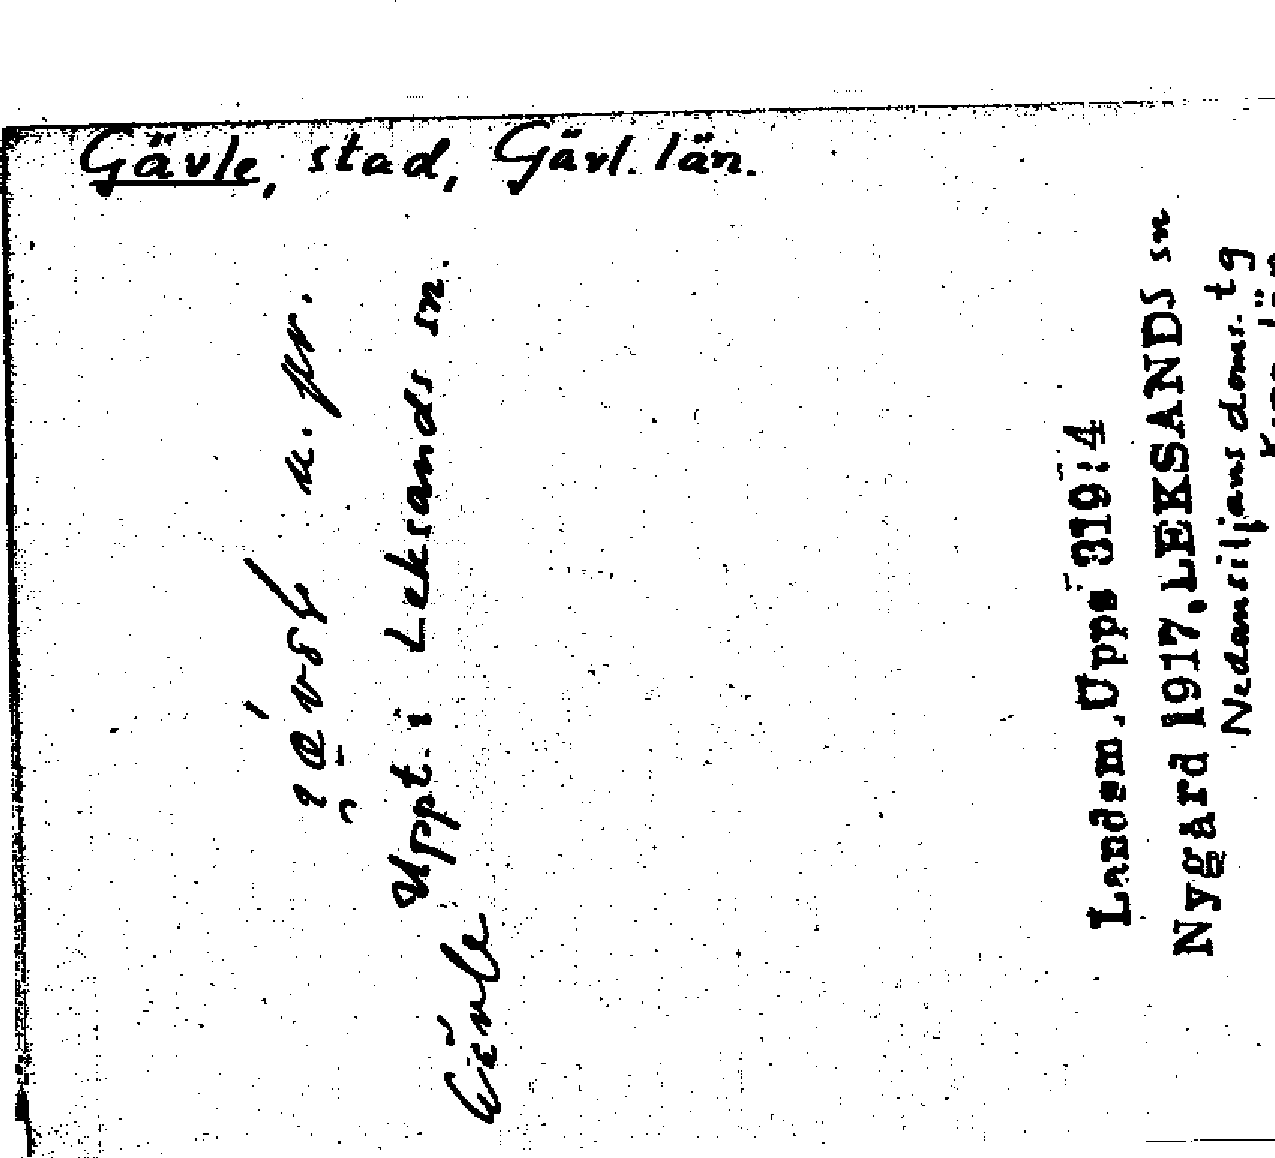 Gävle, stad, Gävl. län.
a. pr.
Uppt. i Leksands sn.
Gävle
Landsm. Upps 319:4
Nygård 1917, LEKSANDS sn
Nedansiljans doms. tg